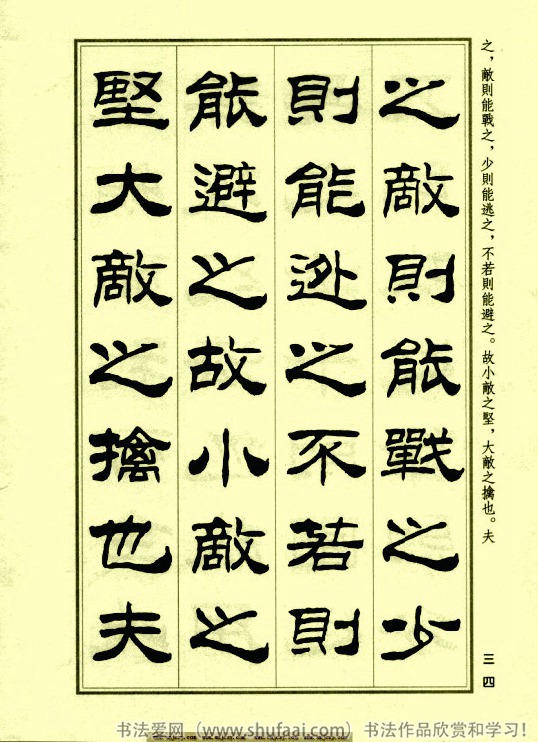 之，敵則能戰之，少則能逃之，不若則能避之。故小敵之堅，大敵之擒也。夫
之敵則能戰之少
則能逃之不若則
能避之故小敵之
堅大敵之擒也夫
三四
书法爱网（www.shufaai.com）书法作品欣赏和学习！